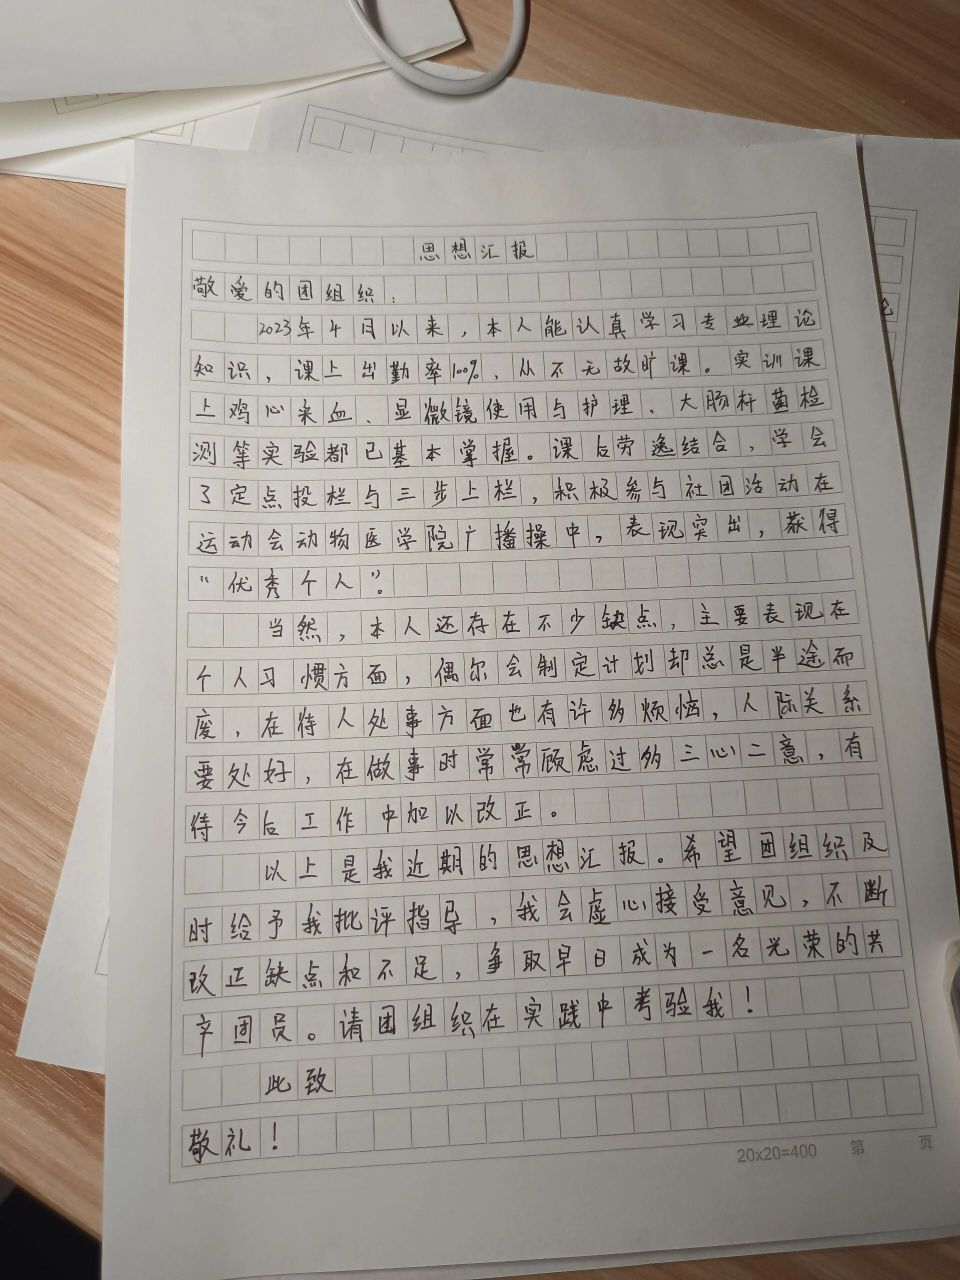 思想汇报
敬爱的团组织：
2023年4月以来，本人能认真学习专业理论
知识，课上出勤率100%，从不无故旷课。实训课
上鸡心采血、显微镜使用与护理、大肠杆菌检
测等实验都已基本掌握。课后劳逸结合，学会
了定点投栏与三步上栏，积极参与社团活动在
运动会动物医学院广播操中，表现突出，获得
“优秀个人”。
当然，本人还存在不少缺点，主要表现在
个人习惯方面，偶尔会制定计划却总是半途而
废，在待人处事方面也有许多烦恼，人际关系
要处好，在做事时常常顾虑过多三心二意，有
待今后工作中加以改正。
以上是我近期的思想汇报。希望团组织及
时给予我批评指导，我会虚心接受意见，不断
改正缺点和不足，争取早日成为一名光荣的共
辛团员。请团组织在实践中考验我！
此致
敬礼！
20x20=400 第 页